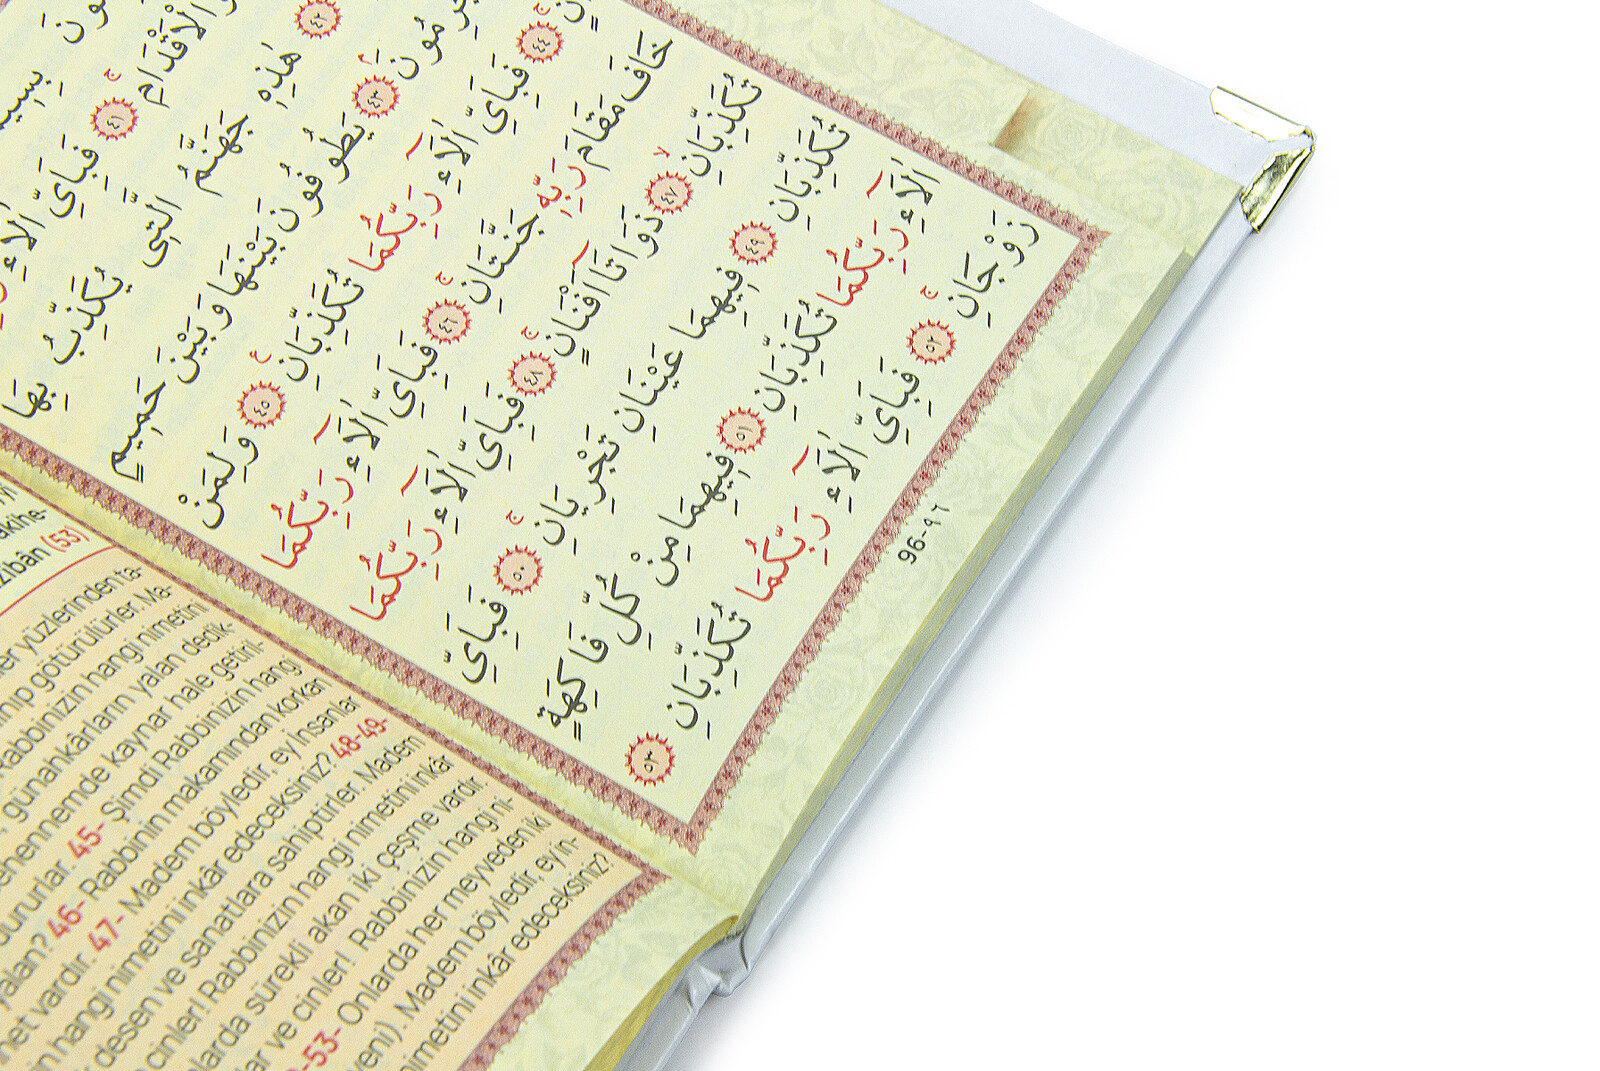 وَالْاَقْدَامِ ٤١ فَبِاَيِّ اٰلَٓاءِ
٤٢ هٰذِهِ جَهَنَّمُ الَّتِي يُكَذِّبُ بِهَا
رِمُونَ ٤٣ يَطُوفُونَ بَيْنَهَا وَبَيْنَ حَمِيمٍ
٤٤ فَبِاَيِّ اٰلَٓاءِ رَبِّكُمَا تُكَذِّبَانِ ٤٥ وَلِمَنْ
خَافَ مَقَامَ رَبِّهِ جَنَّتَانِ ٤٦ فَبِاَيِّ اٰلَٓاءِ رَبِّكُمَا
تُكَذِّبَانِ ٤٧ ذَوَاتَٓا اَفْنَانٍ ٤٨ فَبِاَيِّ اٰلَٓاءِ رَبِّكُمَا
تُكَذِّبَانِ ٤٩ فِيهِمَا عَيْنَانِ تَجْرِيَانِ ٥٠ فَبِاَيِّ
اٰلَٓاءِ رَبِّكُمَا تُكَذِّبَانِ ٥١ فِيهِمَا مِنْ كُلِّ فَاكِهَةٍ
زَوْجَانِ ٥٢ فَبِاَيِّ اٰلَٓاءِ رَبِّكُمَا تُكَذِّبَانِ ٥٣
96-٩٦
akihe-
zibân (53)
er yüzlerinden ta-
nıp götürülürler. Ma-
Rabbinizin hangi nimetini
günahkârların yalan dedik-
ehennemde kaynar hale getiril-
dururlar. 45- Şimdi Rabbinizin hangi
yalan? 46- Rabbinin makamından korkan
net vardır. 47- Madem böyledir, ey insanlar
in hangi nimetini inkâr edeceksiniz? 48-49-
desen ve sanatlara sahiptirler. Madem
cinler! Rabbinizin hangi nimetini inkâr
nlarda sürekli akan iki çeşme vardır.
lar ve cinler! Rabbinizin hangi ni-
-53- Onlarda her meyveden iki
yeni). Madem böyledir, ey in-
nimetini inkâr edeceksiniz?